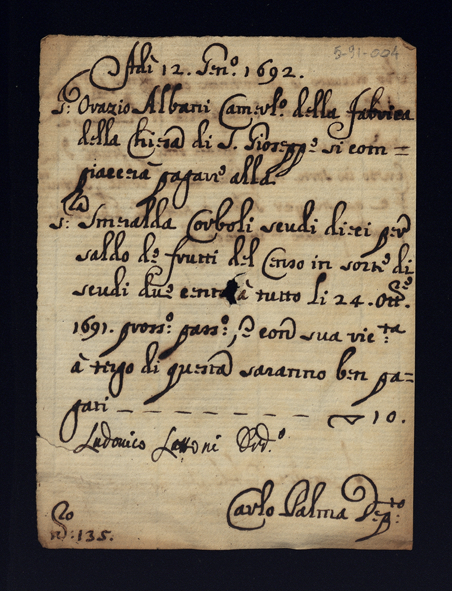 5-91-004
Adì 12. Gen.º 1692.
S.r Orazio Albani Camerl.º della Fabrica
della Chiesa di S. Gioseppe si com=
piacerà pagare alla
S.ra Smeralda Corboli scudi dieci per
saldo de frutti del Censo in sorte di
scudi due cento à tutto li 24. Ott.e
1691. pross.º pass.º, e con sua ric.ta
à tergo di questa saranno ben pa=
gati — — — — — — — 10.
Ludovico
Carlo Palma
n.º: 135.